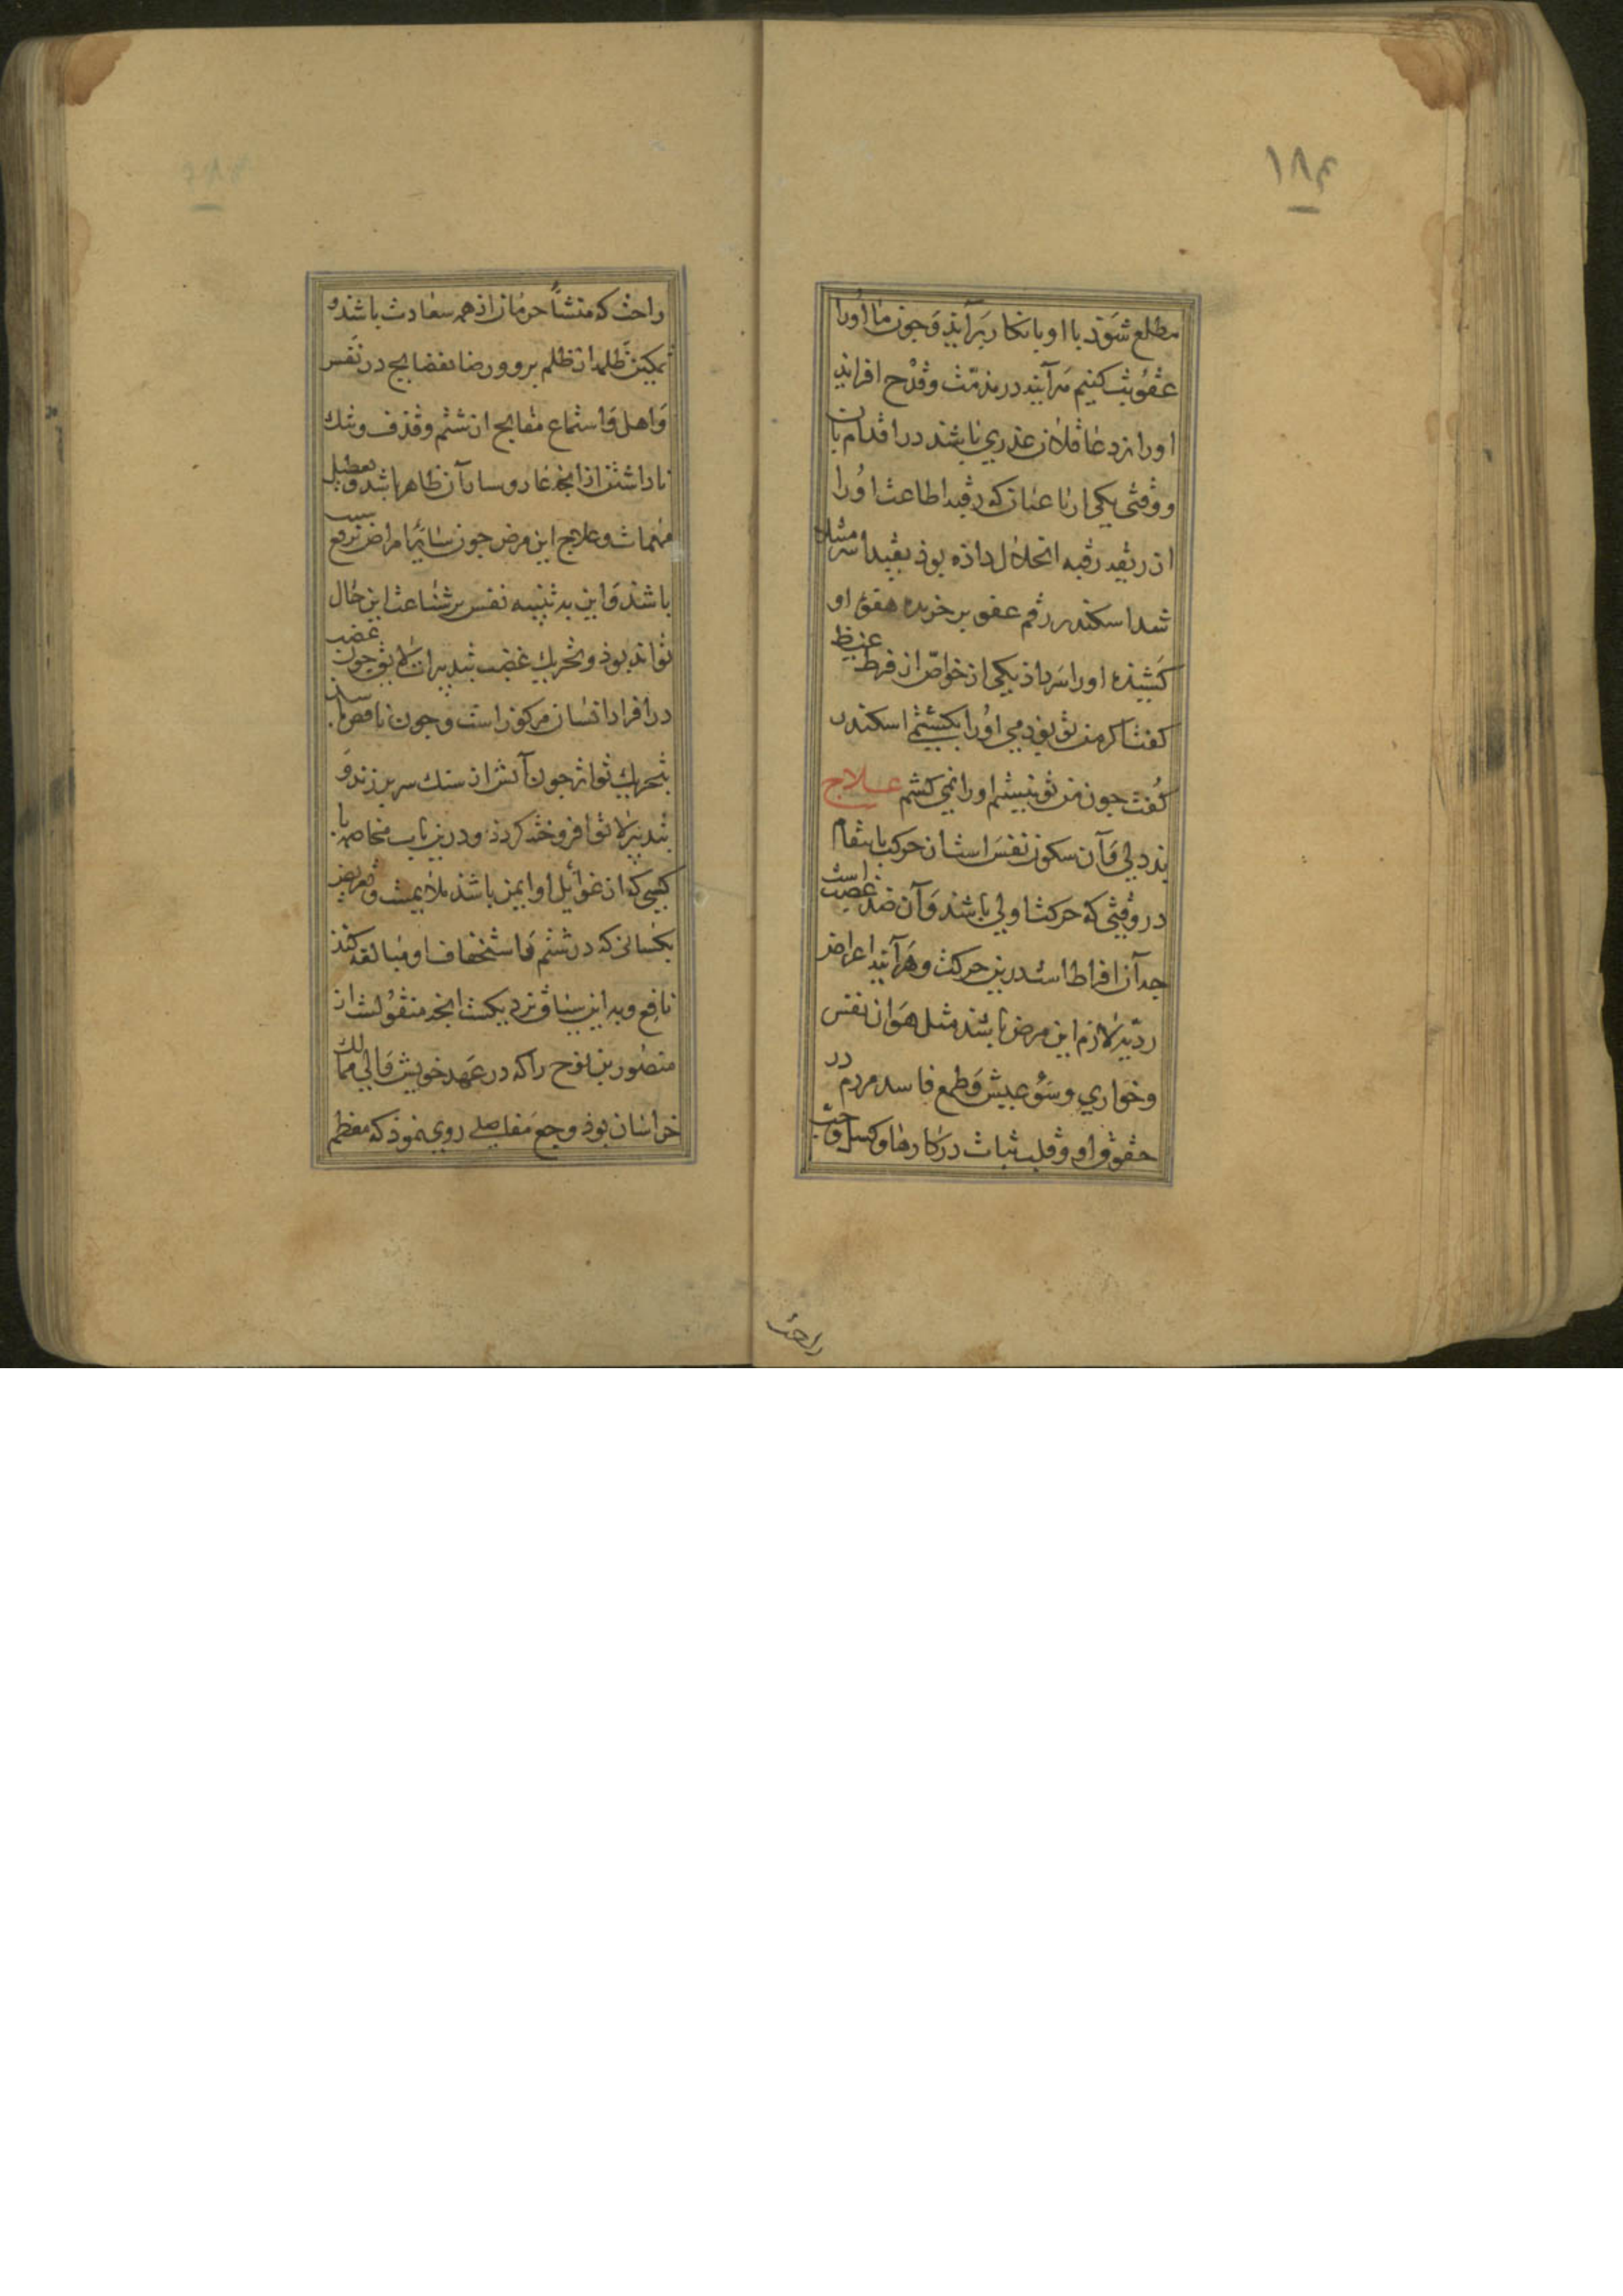 ١٨٤
مطلع شود با او بانکار برآید و چون ما او را
عقوبت کنیم هرآینه در مذمّت و قدح افزاید
او را نزد عاقلان عذری باشد در اقدام بان
و وقتی یکی از باغیان که رقبه اطاعت او را
از ربقه رقبه انحلال داده بود بقید اسر مبتلا
شد اسکندر رقم عفو بر جریده هفوۀ او
کشیده او را سر داد یکی از خواصّ از فرط غیظ
کفت اکر من تو بودمی او را بکشتمی اسکندر
کفت چون من تو نیستم او را نمی کشم علاج
بددلی و آن سکون نفس است از حرکت بانتقام
در وقتی که حرکت اولی باشد و آن ضد غضب است
چه آن افراط است درین حرکت و هرآینه اعراض
ردّیه لازم این مرض باشد مثل هوان نفس
و خواری و سوٴ عیش و طمع فاسد مردم در
حقوق او و قلت ثبات در کارها و کسل و حبّ
راحت
راحت که منشأ حرمان از همه سعادت باشد و
تمکین ظلمه از ظلم برو و رضا بفضایح در نفس
و اهل و استماع مقابح از شتم و قذف و ننك
ناداشتن از آنچه عار و سار آن ظاهر باشد و تعطیل
مهمات و علاج این مرض چون سائر امراض برفع سبب
باشد و این به تنبیه نفس بر شناعت این حال
تواند بود و تحریك غضب بتدبیرات لایق چون غضب
در افراد انسان مرکوز است و چون ناقص باشد
بتحریك تواتر چون آتش از سنك سر برزند و
بتدبیر لایق افروخته کردد و درین باب مخاصمه با
کسی که از غوائل او ایمن باشد ملایمست و تعریض
بکسانی که در شتم و استخفاف او مبالغه کنند
نافع و به این سیاق نزدیکست آنچه منقولست از
منصور بن نوح را که در عهد خویش والی ممالك
خراسان بود وجع مفاصلی روی نمود که معظم